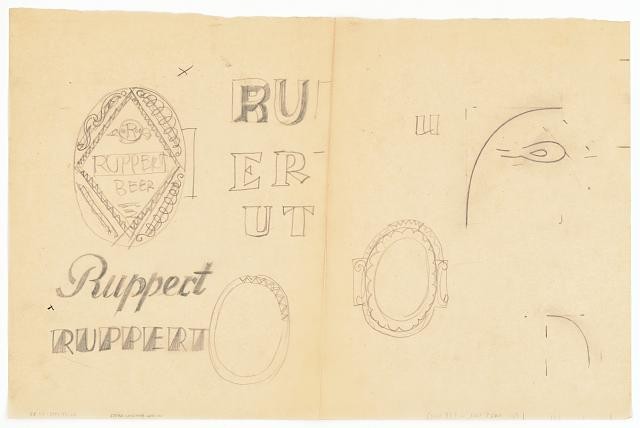 R
RUPPERT
BEER
RU
ER
UT
Ruppert
RUPPERT
u